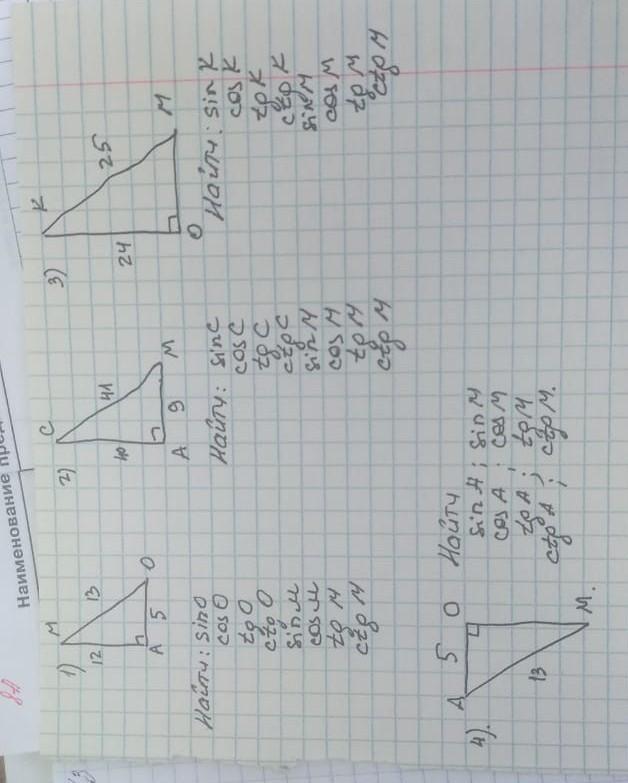 Наименование пред
8А
1)
M
12
13
A
5
O
Найти: sin O
cos O
tg O
ctg O
sin M
cos M
tg M
ctg M
2)
C
40
41
A
9
M
Найти: sin C
cos C
tg C
ctg C
sin M
cos M
tg M
ctg M
3)
K
24
25
O
M
Найти: sin K
cos K
tg K
ctg K
sin M
cos M
tg M
ctg M
4).
A
5
O
13
M.
Найти
sin A ; sin M
cos A ; cos M
tg A ; tg M
ctg A ; ctg M.